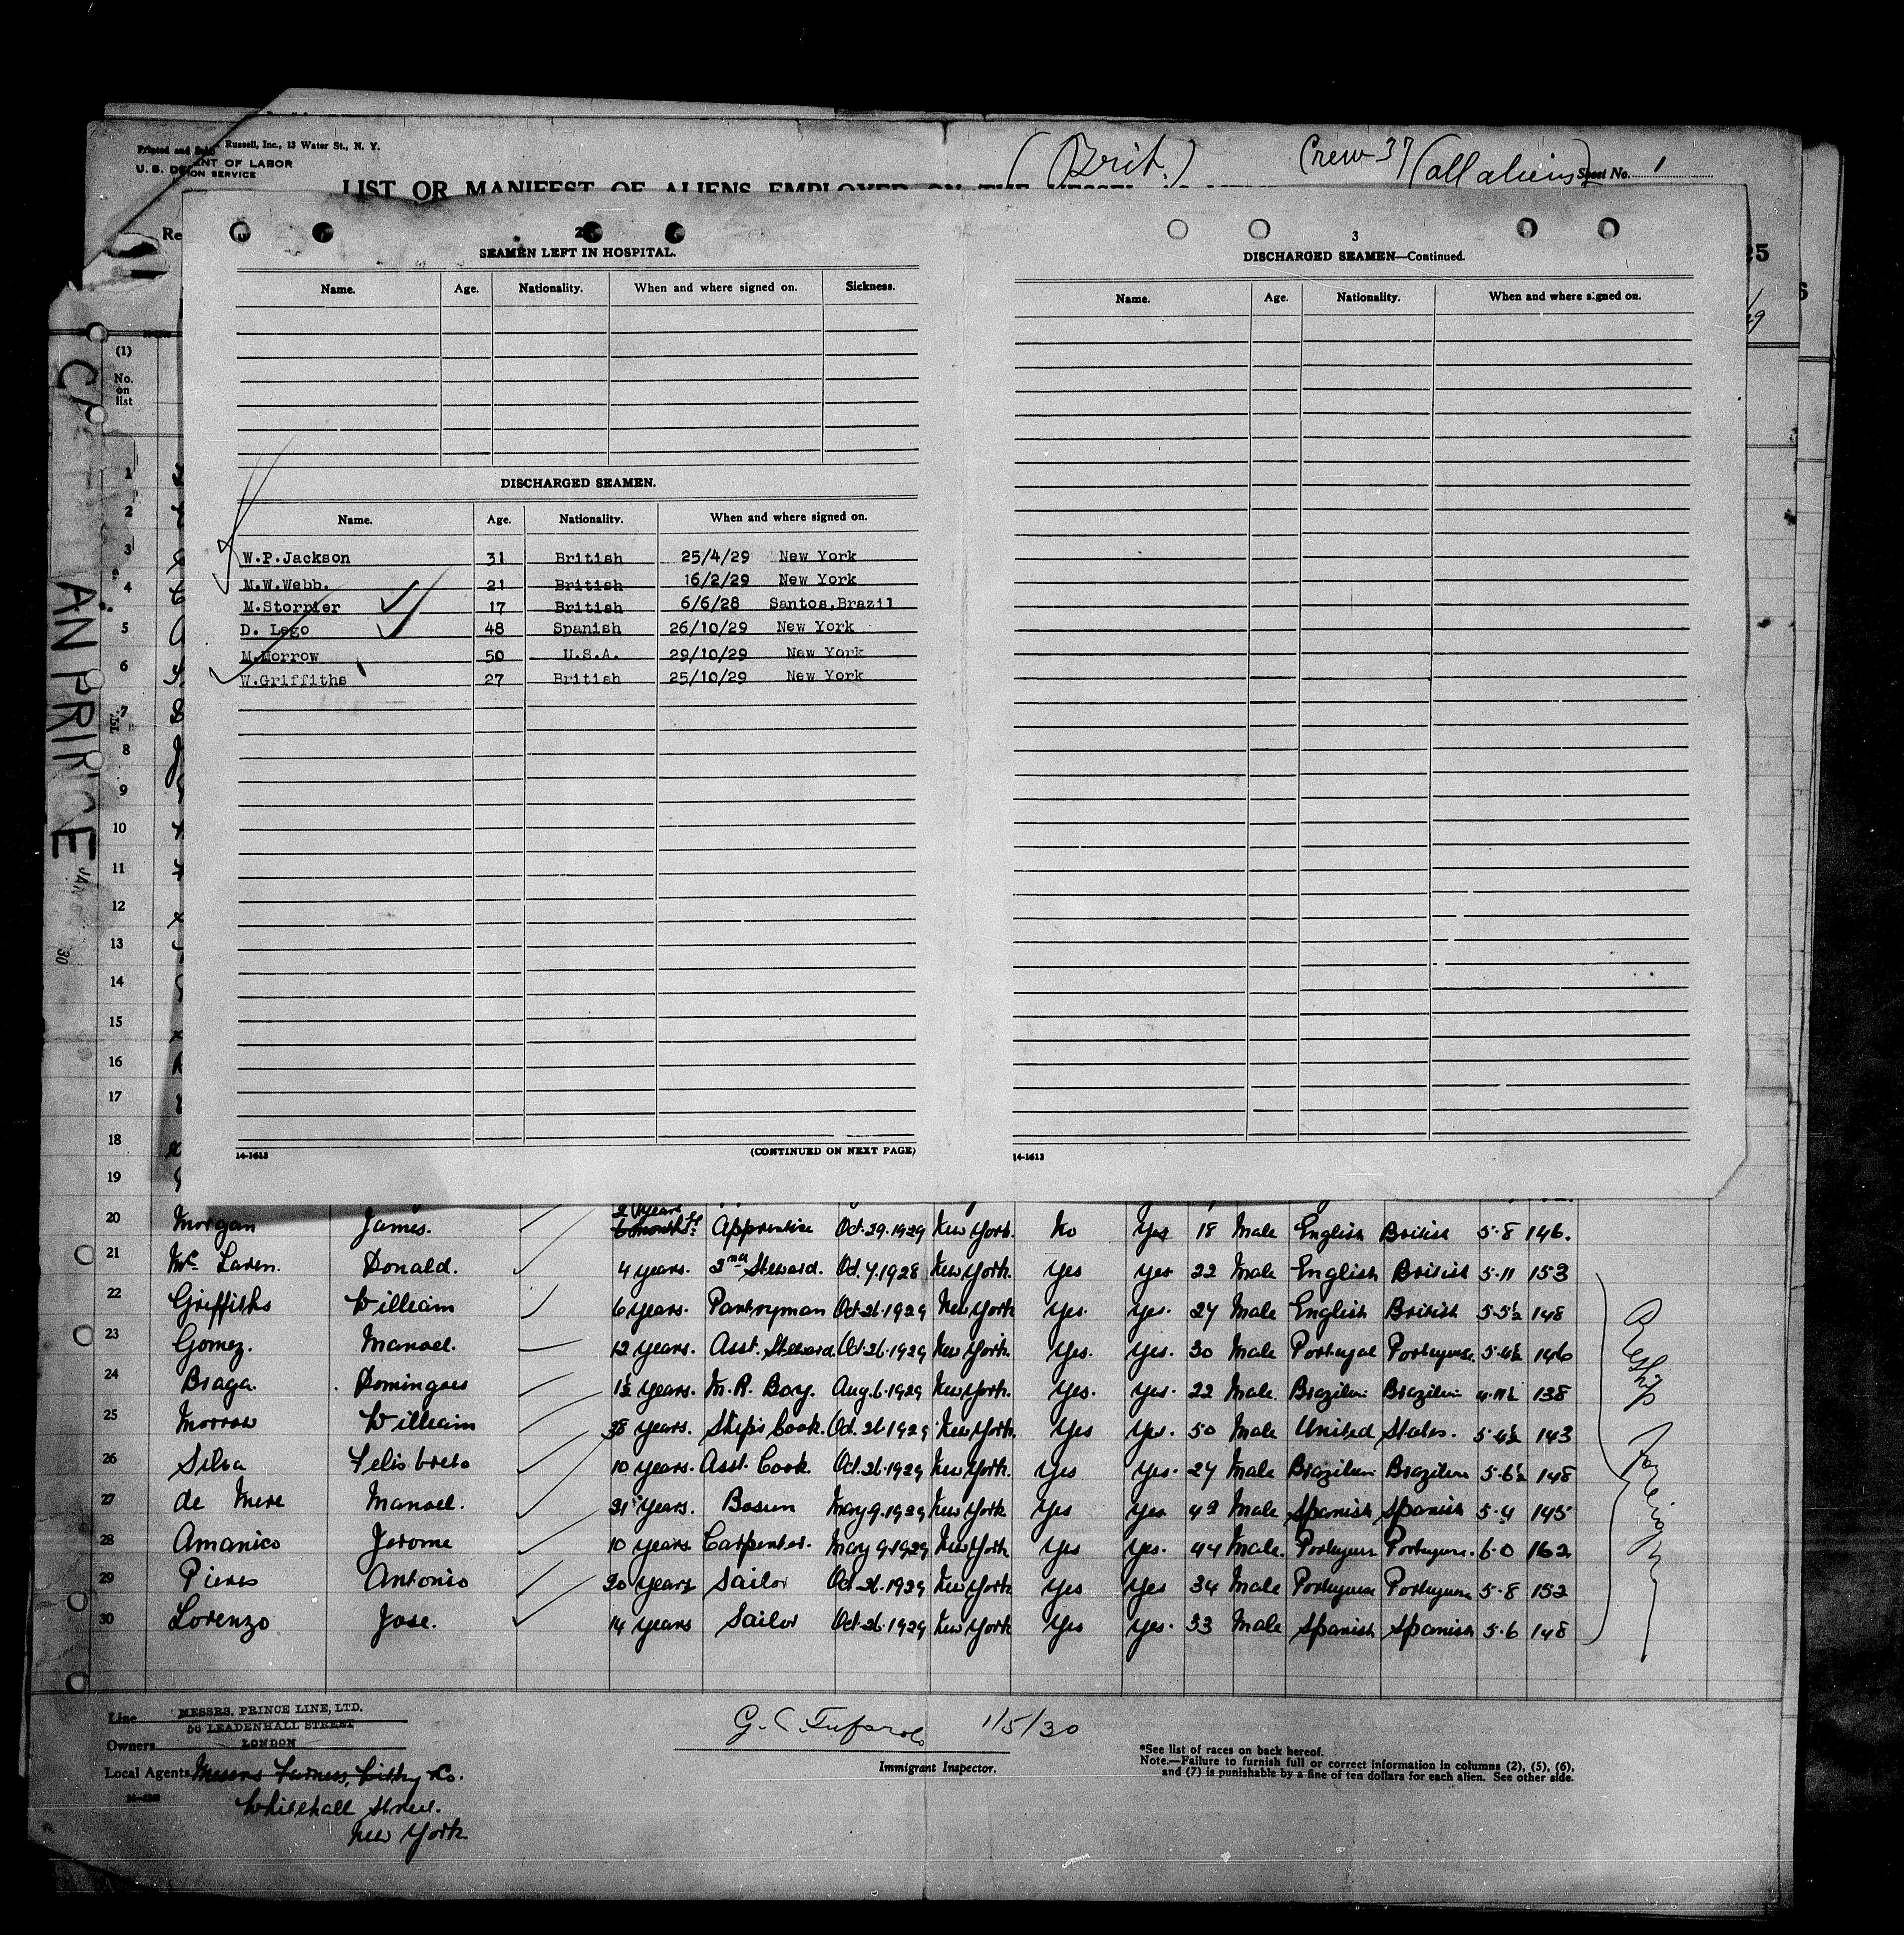 Russell, Inc., 13 Water St., N. Y.
U. S. D
NT OF LABOR
ION SERVICE
(Brit.)
Crew 37
(all aliens)
Sheet No. 1
LIST OR MANIFEST OF ALIENS EMPLOYED ON THE VESSEL
Re
25
(1)
No.
on
list
2
SEAMEN LEFT IN HOSPITAL.
Name. Age. Nationality. When and where signed on. Sickness.
DISCHARGED SEAMEN.
Name. Age. Nationality. When and where signed on.
W.P.Jackson 31 British 25/4/29 New York
M.W.Webb. 21 British 16/2/29 New York
M.Storrier 17 British 6/6/28 Santos,Brazil
D. Lego 48 Spanish 26/10/29 New York
M.Morrow 50 U.S.A. 29/10/29 New York
W.Griffiths 27 British 25/10/29 New York
14-1613
(CONTINUED ON NEXT PAGE)
3
DISCHARGED SEAMEN—Continued.
Name. Age. Nationality. When and where signed on.
14-1613
AN PRINCE
JAN
30
1
2
3
4
5
6
7
8
9
10
11
12
13
14
15
16
17
18
19
20 Morgan James. 2 years Apprentice Oct.29.1929 New York. No Yes 18 Male English British 5-8 146.
21 Mc Laren. Donald. 4 years. 2nd Steward. Oct.4.1928 New York. Yes Yes 22 Male English British 5-11 153
22 Griffiths William 6 years. Pantryman Oct.26.1929 New York Yes. Yes. 27 Male English British 5-5½ 148
23 Gomez. Manoel. 12 years. Asst. Steward. Oct.26.1929 New York. Yes. Yes. 30 Male Portugal Portuguese. 5-4½ 146
24 Braga. Domingoes 1½ years. M.R. Boy. Aug.6.1929 New York. Yes. Yes. 22 Male. Brazilian Brazilian 4-11½ 138
25 Morrow William 38 years. Ship's Cook. Oct.26.1929 New York. Yes Yes. 50 Male United States. 5-4½ 143
26 Silva Felisberto 10 years. Asst. Cook. Oct.26.1929 New York. Yes Yes. 27 Male Brazilian Brazilian 5-6½ 148
27 de Mere Manoel. 21 years. Bosun May 9.1929 New York Yes Yes. 42 Male Spanish Spanish 5-4 145
28 Amanico Jerome 10 years Carpenter. May 9.1929 New York Yes Yes. 44 Male. Portuguese Portuguese. 6-0 162
29 Pieres Antonio 20 years Sailor Oct.26.1929 New York Yes Yes 34 Male Portuguese Portuguese 5-8 152
30 Lorenzo Jose. 14 years Sailor Oct.26.1929 New York Yes Yes. 33 Male Spanish Spanish 5-6 148
Reship Foreign
Line MESSRS. PRINCE LINE, LTD.
56 LEADENHALL STREET
Owners LONDON
Local Agents Messrs Furness, Withy & Co.
Whitehall Street.
New York
1/5/30
Immigrant Inspector.
*See list of races on back hereof.
Note.—Failure to furnish full or correct information in columns (2), (5), (6),
and (7) is punishable by a fine of ten dollars for each alien. See other side.